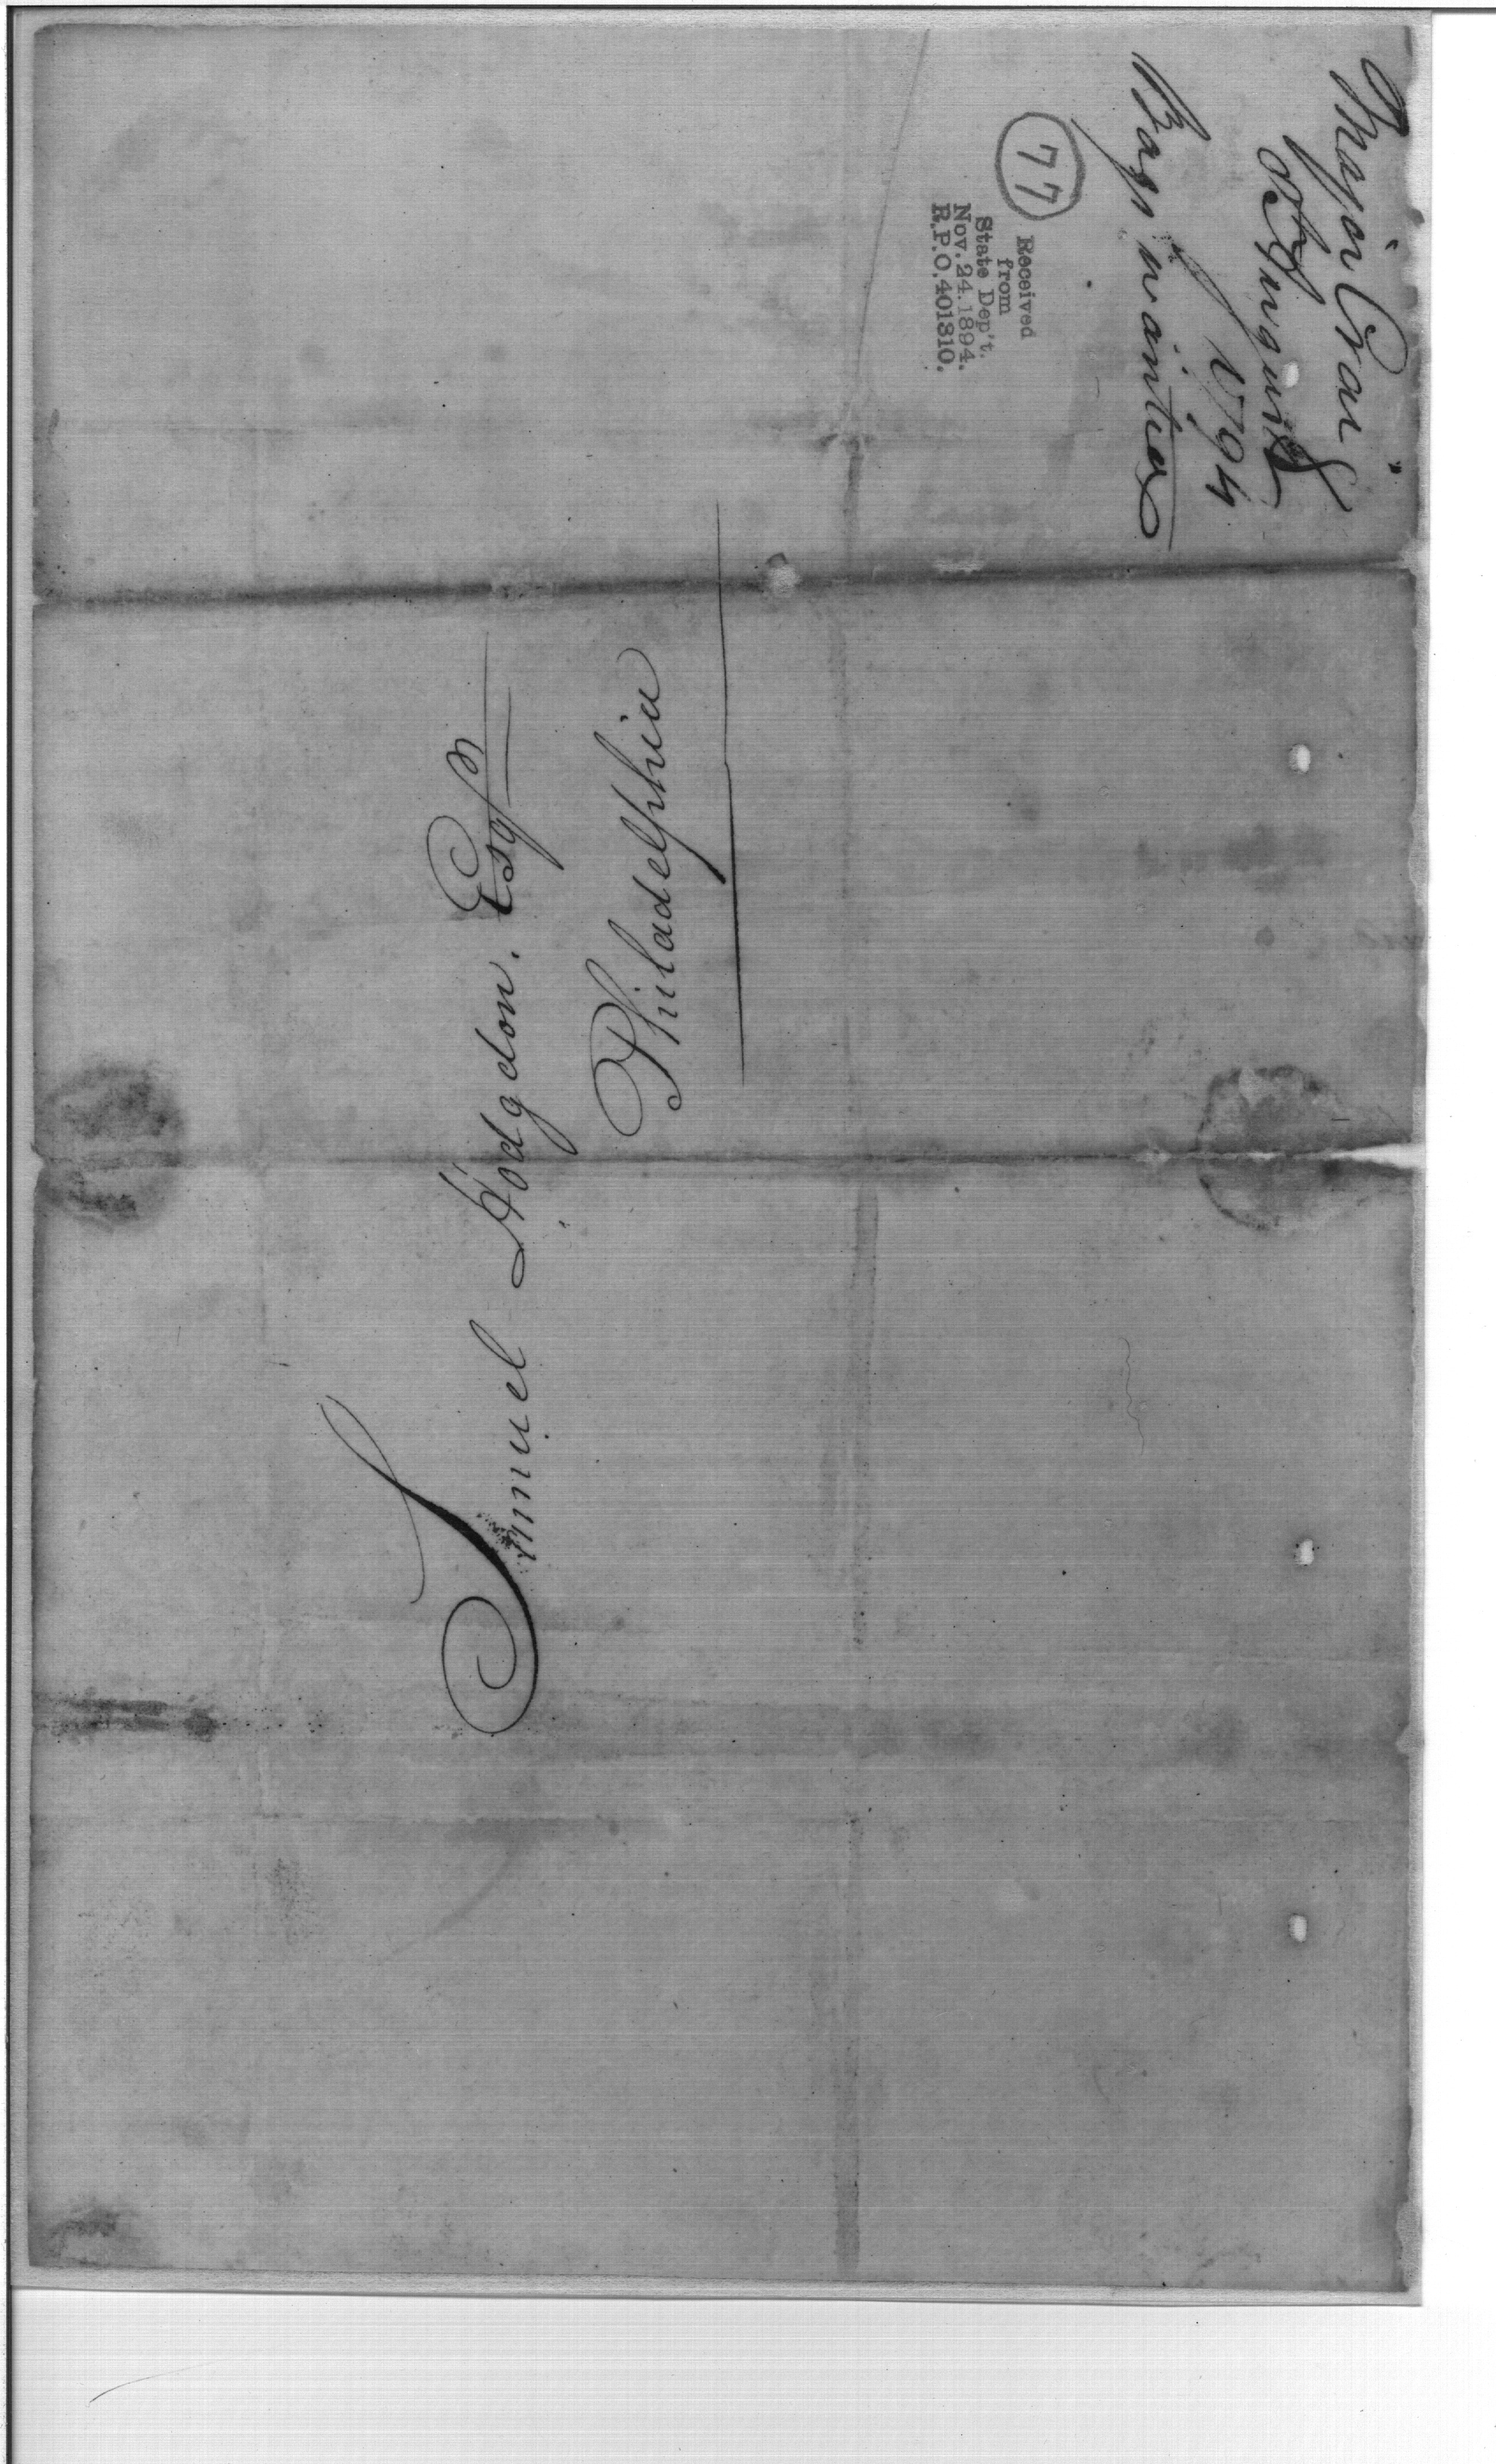 Major Craig
8th August
1794
Bags wanted
77
Received
from
State Dep't.
Nov. 24. 1894.
R.P.O. 401310.
Samuel Hodgdon. Esqr
Philadelphia